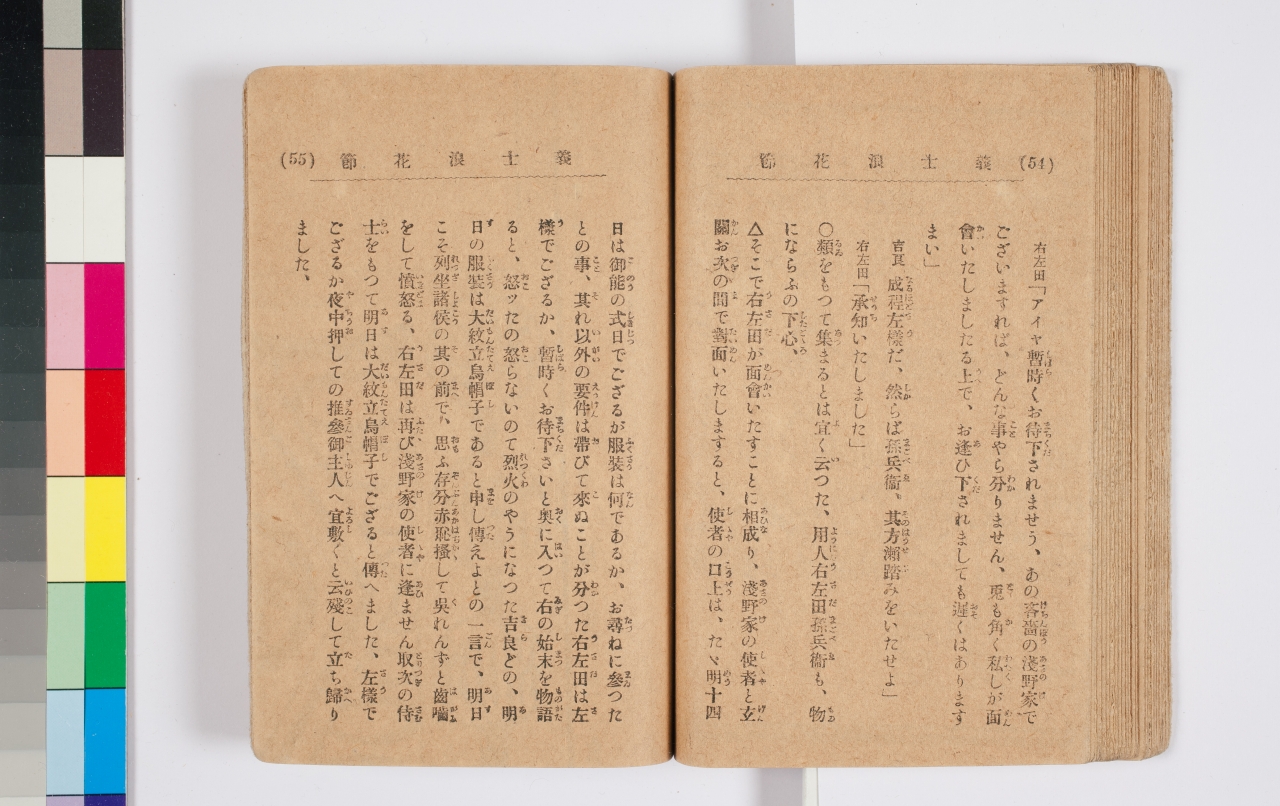 (54) 義士浪花節
右左田「アイヤ暫時くお待下されませう、あの客嗇の淺野家で
ございますれば、どんな事やら分りません、兎も角く私しが面
會いたしましたる上で、お逢ひ下されましても遲くはあります
まい」
吉良「成程左樣だ、然らば孫兵衞、其方瀬踏みをいたせよ」
右左田「承知いたしました」
〇類をもつて集まるとは宜く云つた、用人右左田孫兵衞も、物
にならふの下心、
△そこで右左田が面會いたすことに相成り、淺野家の使者と玄
關お次の間で對面いたしますると、使者の口上は、たゞ明十四
義士浪花節 (55)
日は御能の式日でござるが服裝は何であるか、お尋ねに參つた
との事、其れ以外の要件は帶びて來ぬことが分つた右左田は左
樣でござるか、暫時くお待下さいと奧に入つて右の始末を物語
ると、怒ッたの怒らないのて烈火のやうになつた吉良どの、明
日の服裝は大紋立烏帽子であると申し傳えよとの一言で、明日
こそ列坐諸侯の其の前で、思ふ存分赤恥搔して吳れんずと齒嚙
をして憤怒る、右左田は再び淺野家の使者に逢ません取次の侍
士をもつて明日は大紋立烏帽子でござると傳へました、左樣で
ござるか夜中押しての推參御主人へ宜敷くと云殘して立ち歸り
ました、